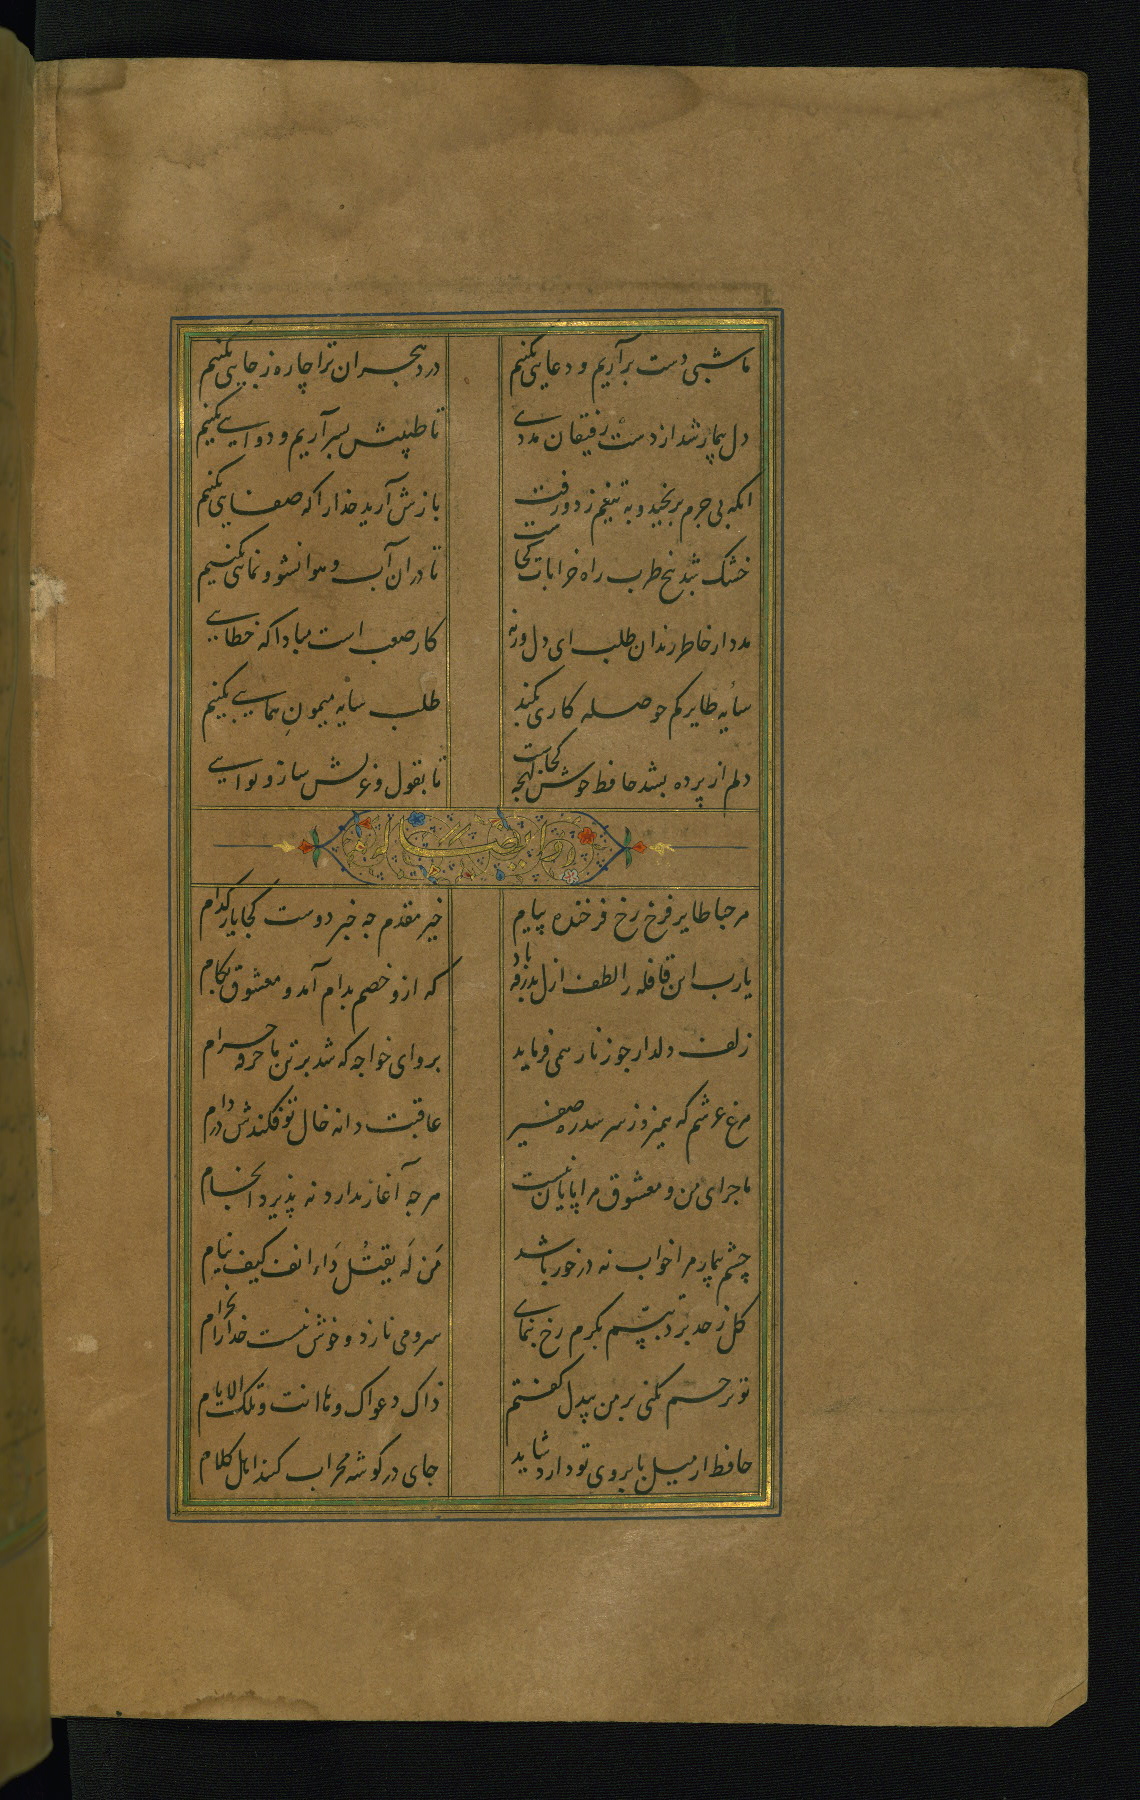 ما شبی دست برآریم و دعایی بکنیم درد هجران ترا چاره ز جایی بکنیم
دل بیمار شد از دست رفیقان مددی تا طبیبش بسر آریم و دوایی بکنیم
انکه بی جرم برنجید و به تیغم زد و رفت بازش آرید خدارا که صفایی بکنیم
خشک شد بیخ طرب راه خرابات کجاست تا دران آب و هوا نشو و نمایی بکنیم
مدد از خاطر رندان طلب ای دل ورنه کار صعب است مبادا که خطایی
سایه طایر کم حوصله کاری نکند طلب سایه میمونِ همایی بکنیم
دلم از پرده بشد حافظ خوش لهجه کجاست تا بقول و غزلش ساز و نوایی
وله ایضا
مرحبا طایر فرخ رخ فرخنده پیام خیر مقدم چه خبر دوست کجا یار کدام
یارب این قافله را لطف ازل بدرقه باد که ازو خصم بدام آمد و معشوق بکام
زلف دلدار چو زنار همی فرماید برو ای خواجه که شد بر تن ما خرقه حرام
مرغ عرشم که همیزد ز سر سدره صفیر عاقبت دانه خال تو فکندش در دام
ماجرای من و معشوق مرا پایان نیست هرچه آغاز ندارد نه پذیرد انجام
چشم بیمار مرا خواب نه در خور باشد مَن لَه یقتُل دَاء انف کیف ینام
گل ز حد برد تبسم بکرم رخ بنمای سرو می نازد و خوش نیست خدا را بخرام
تو ترحم نکنی بر من بیدل گفتم ذاک دعوای وها انت و تلک الایام
حافظ ار میل بابروی تو دارد شاید جای در گوشه محراب کنند اهل کلام